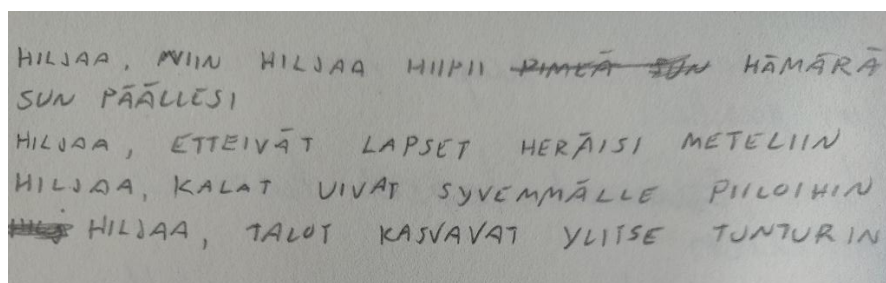 HILJAA, NIIN HILJAA HIIPII PIMEÄ SUN HÄMÄRÄ
SUN PÄÄLLESI
HILJAA, ETTEIVÄT LAPSET HERÄISI METELIIN
HILJAA, KALAT UIVAT SYVEMMÄLLE PIILOIHIN
HILJ HILJAA, TALOT KASVAVAT YLITSE TUNTURIN